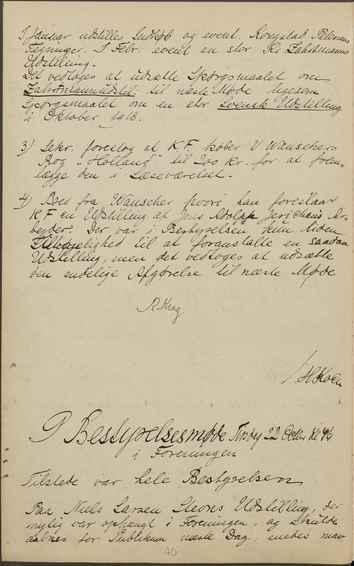 I Januar udstilles Indkøb og event. Kongstad Petersens
Tegninger. I Febr. event en stor Kr. Zahrtmanns
Udstilling.
Det vedtoges at udsætte Spørgsmaalet om
til næste Møde ligesom
Spørgsmaalet om en stor svensk Udstilling
i Oktober 1918.
3) Sekr. foreslog at K.F. køber V. Wanschers
Bog "Holland" til 200 Kr. for at frem-
lægge den i Læseværelset.
4) Brev fra Wanscher hvori han foreslaar
K F en Udstilling af Jens Adolph Jerichaus Ar-
bejder. Der var i Bestyrelsen kun liden
Tilbøjelighed til at foranstalte en saadan
Udstilling, men det vedtoges at udsætte
den endelige Afgørelse til næste Møde
Bestyrelsesmøde 22 Kl 4½
i Foreningen
Tilstede var hele Bestyrelsen
Paa Niels Larsen Stevns Udstilling, der
nylig var ophængt i Foreningen, og skulde
aabnes for Publikum næste Dag, enedes man